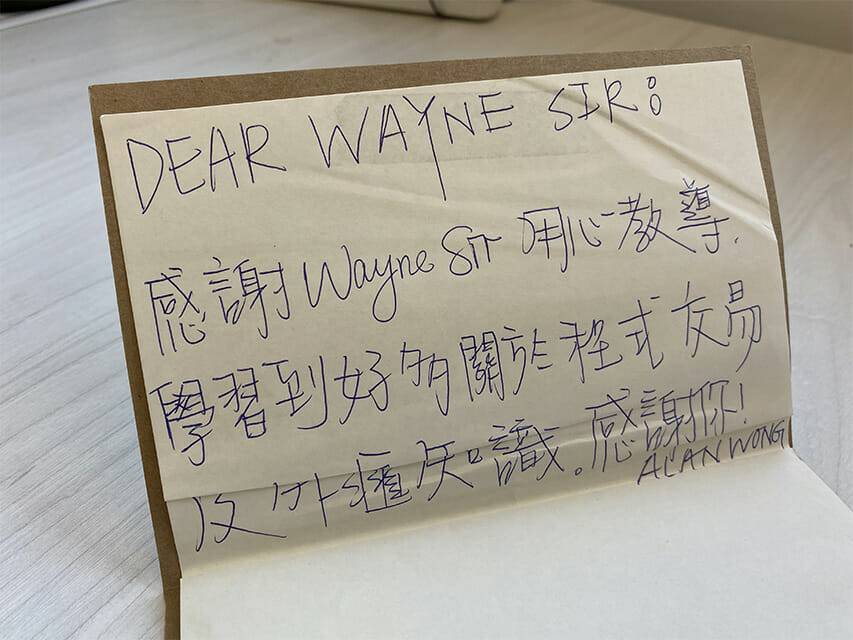 DEAR WAYNE SIR:
感謝 Wayne Sir 用心教導,
學習到好多關於程式交易
及外匯知識。感謝你!
ALAN WONG